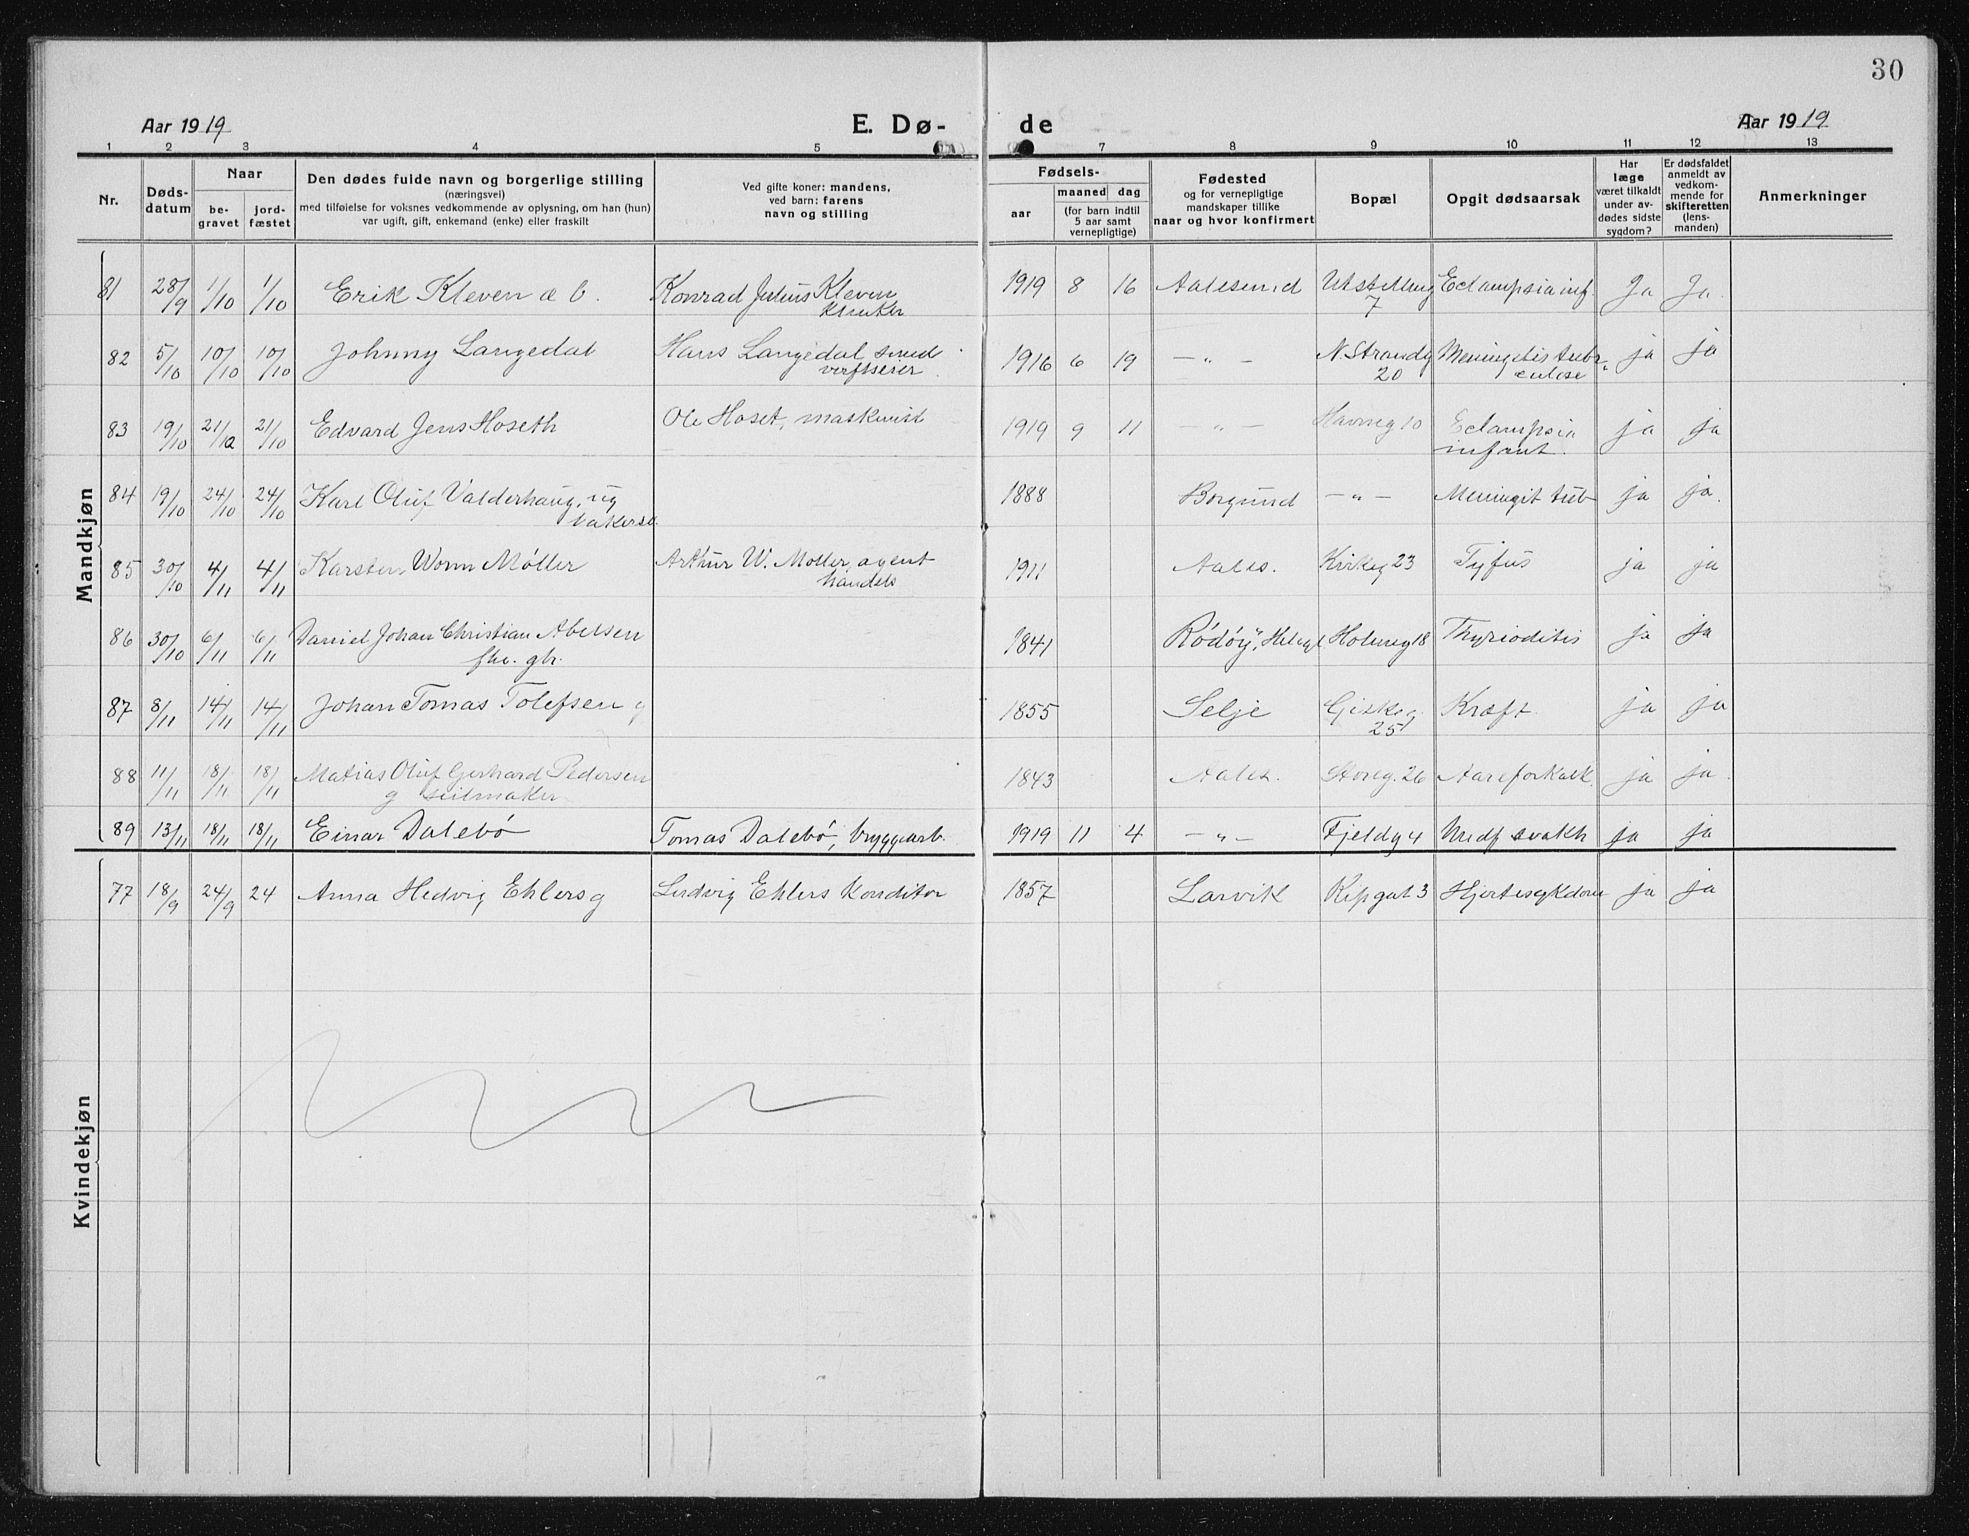 30
Aar 1919 E. Dø- de Aar 1919
1 2 3 4 5 7 8 9 10 11 12 13
Nr.
Døds-
datum
Naar
be-
gravet
jord-
fæstet
Den dødes fulde navn og borgerlige stilling
(næringsvei)
med tilføielse for voksnes vedkommende av oplysning, om han (hun)
var ugift, gift, enkemand (enke) eller fraskilt
Ved gifte koner: mandens,
ved barn: farens
navn og stilling
Fødsels-
aar
maaned dag
(for barn indtil
5 aar samt
vernepligtige)
Fødested
og for vernepligtige
mandskaper tillike
naar og hvor konfirmert
Bopæl
Opgit dødsaarsak
Har
læge
været tilkaldt
under av-
dødes sidste
sygdom?
Er dødsfaldet
anmeldt av
vedkom-
mende for
skifteretten
(lens-
manden)
Anmerkninger
Mandkjøn
81 28/9 1/10 1/10 Erik Kleven Konrad Julius Kleven 1919 8 16 Aalesund 7 Eclampsia inf. Ja Ja.
82 5/10 10/10 10/10 Johnny Langedal Hans Langedal 1916 6 19 —„— N. Strandg 20 Meningitis tuber- culose ja ja
83 19/10 21/10 21/10 Edvard Jens Hoseth Ole Hoset, maskinist 1919 9 11 —„— Havneg 10 Eclampsia infant. ja ja
84 19/10 24/10 24/10 Karl Oluf Valderhaug, ug 1888 Borgund —„— Meningit tub ja ja.
85 30/10 4/11 4/11 Karsten Worm Møller Arthur W. Møller, agent handels 1911 Aales. Kirkeg 23 Tyfus ja ja
86 30/10 6/11 6/11 Daniel Johan Christian Abelsen 1841 Rödöy, Helgel Holmeg 18 Thyrioditis ja ja
87 8/11 14/11 14/11 Johan Tomas Tolefsen g 1855 Selje Giskeg 25 Kræft. ja ja
88 11/11 18/11 18/11 Matias Oluf Gerhard Pedersen g seilmaker 1843 Aales. Storeg. 26 Aareforkalk. ja ja.
89 13/11 18/11 18/11 Einar Dalebö Tomas Dalebö, bryggearb. 1919 11 4 —„— Fjeldg 4 Medf svakh ja ja
Kvindekjøn
77 18/9 24/9 24 Anna Hedvig Ehlers g Ludvig Ehlers Konditor 1857 Larvik Kipgat 3 Hjertesykdom ja ja